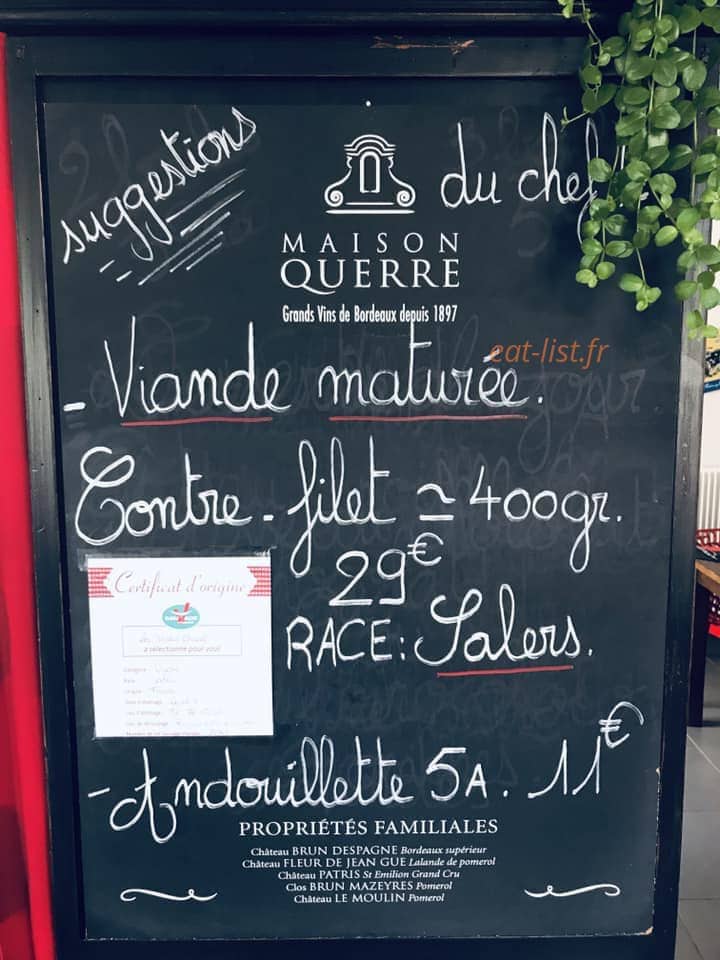 suggestions du chef
MAISON
QUERRE
Grands Vins de Bordeaux depuis 1897
eat-list.fr
- Viande maturée.
Contre-filet ≃ 400gr.
29€
RACE: Salers.
Certificat d'origine
a sélectionné pour vous
- Andouillette 5A. 11€
PROPRIÉTÉS FAMILIALES
Château BRUN DESPAGNE Bordeaux supérieur
Château FLEUR DE JEAN GUE Lalande de pomerol
Château PATRIS St Emilion Grand Cru
Clos BRUN MAZEYRES Pomerol
Château LE MOULIN Pomerol